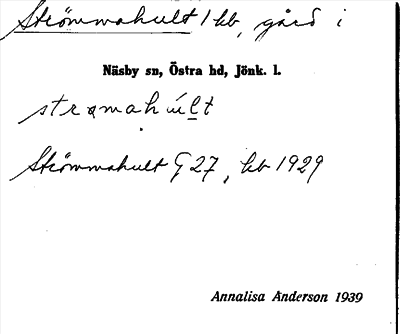 Strömmahult 1 kb, gård i
Näsby sn, Östra hd, Jönk. l.
strømahúlt
Strömmahult G 27, kb 1929
Annalisa Anderson 1939